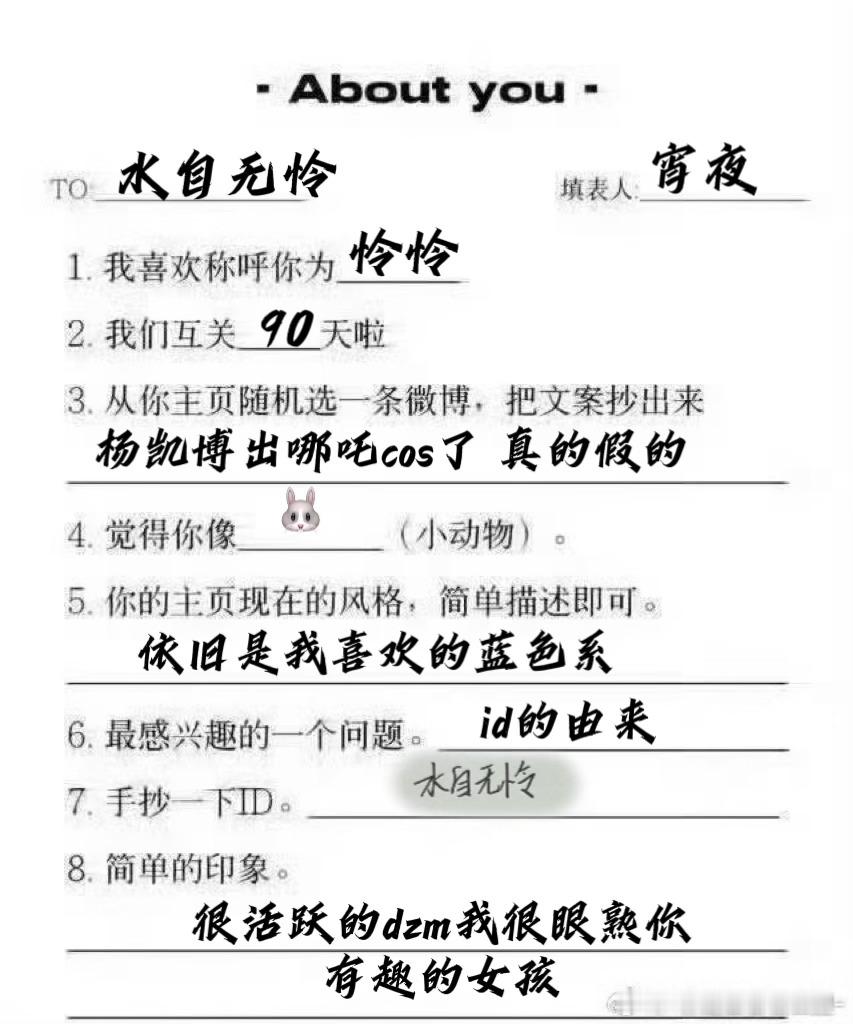 - About you -
TO: 水自无怜 填表人: 宵夜
1. 我喜欢称呼你为 怜怜
2. 我们互关 90 天啦
3. 从你主页随机选一条微博，把文案抄出来
杨凯博出哪吒cos了 真的假的
4. 觉得你像 （小动物）。
5. 你的主页现在的风格，简单描述即可。
依旧是我喜欢的蓝色系
6. 最感兴趣的一个问题。 id的由来
7. 手抄一下ID。 水自无怜
8. 简单的印象。
很活跃的dzm我很眼熟你
有趣的女孩